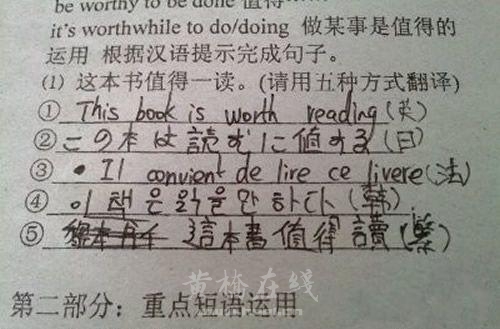 be worthy to be done 值得
it's worthwhile to do/doing 做某事是值得的
运用 根据汉语提示完成句子。
(1) 这本书值得一读。(请用五种方式翻译)
① This book is worth reading (英)
② この本は読むに値する (日)
③ • Il convient de lire ce livere (法)
④ 이 책은 읽을만 하다 (韩)
⑤ 這本書值得讀 (繁)
黄桥在线
第二部分：重点短语运用